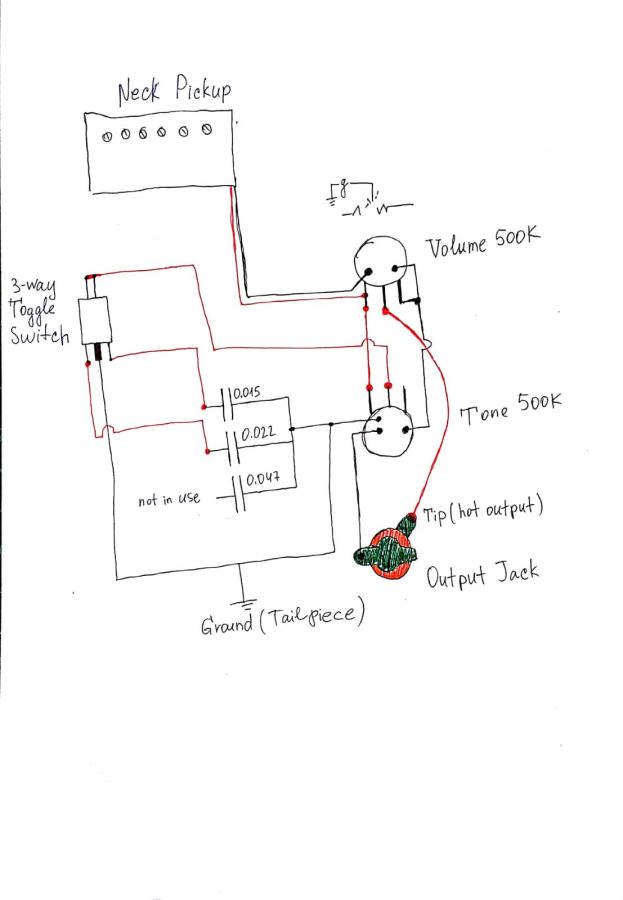 Neck Pickup
Volume 500K
3-way
Toggle
Switch
0.015
0.022
0.047
not in use
Tone 500K
Tip (hot output)
Output Jack
Ground (Tailpiece)